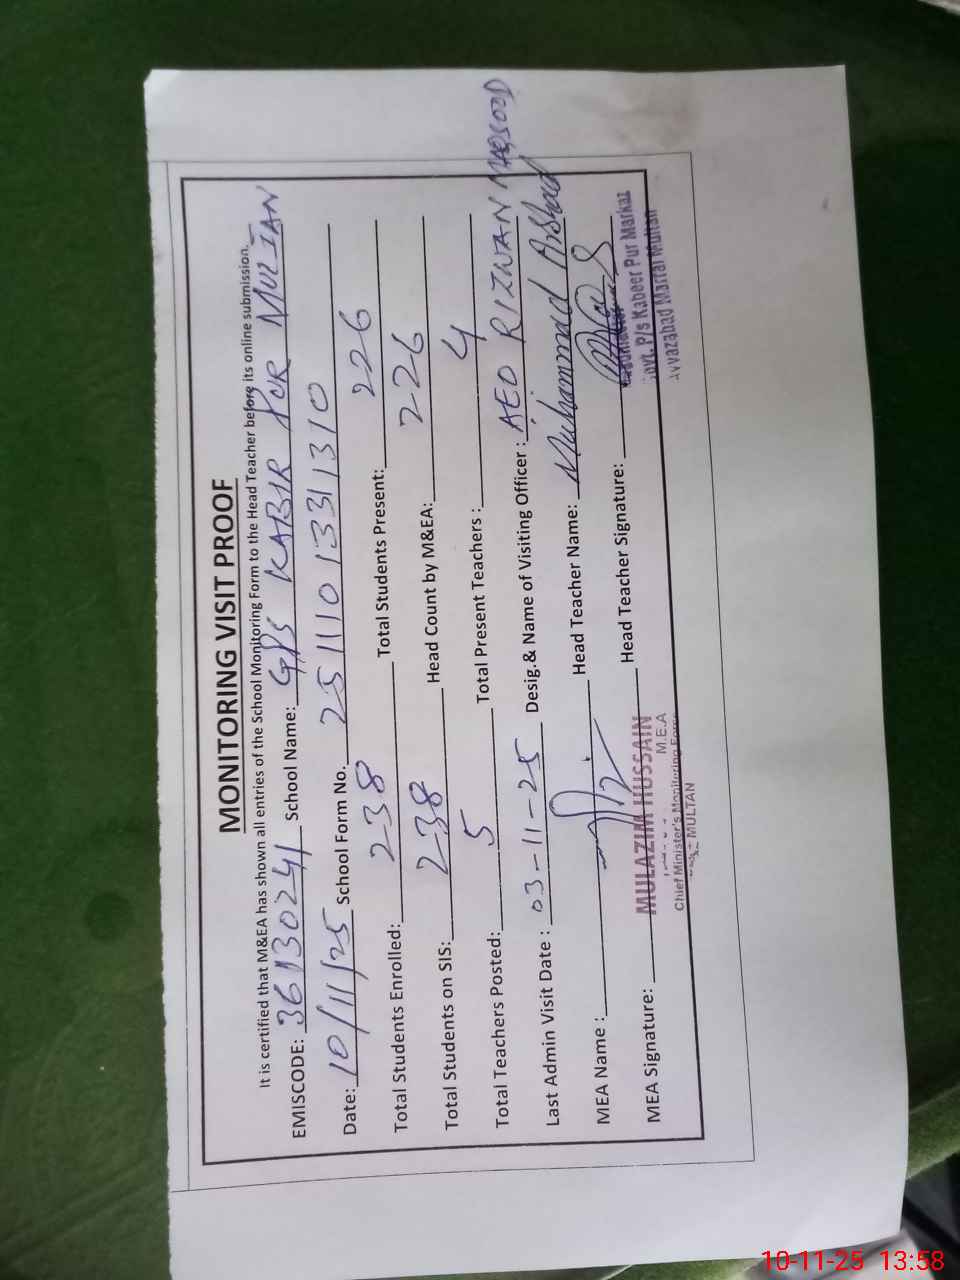 MONITORING VISIT PROOF
It is certified that M&EA has shown all entries of the School Monitoring Form to the Head Teacher before its online submission.
EMISCODE: 36130241 School Name: GPS KABIR PUR MULTAN
Date: 10/11/25 School Form No. 251110133131 0
Total Students Enrolled: 238 Total Students Present: 226
Total Students on SIS: 238 Head Count by M&EA: 226
Total Teachers Posted: 5 Total Present Teachers: 4
Last Admin Visit Date : 03-11-25 Desig.& Name of Visiting Officer : AEO RIZWAN MAQSOOD
MEA Name : Head Teacher Name: Muhammad Arshad
MEA Signature: Head Teacher Signature:
MULAZIM HUSSAIN
M.E.A
Chief Minister's Monitoring Force
MULTAN
Govt. P/s Kabeer Pur Markaz
Multan
10-11-25 13:58